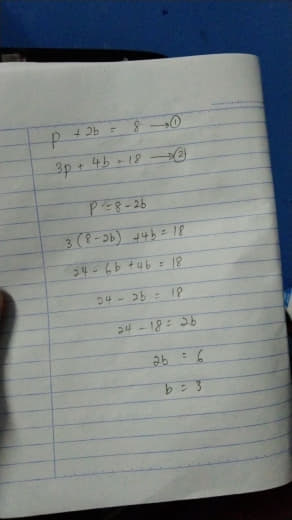 p + 2b = 8 → ①
3p + 4b = 18 → ②
p = 8 - 2b
3(8-2b) + 4b = 18
24 - 6b + 4b = 18
24 - 2b = 18
24 - 18 = 2b
2b = 6
b = 3